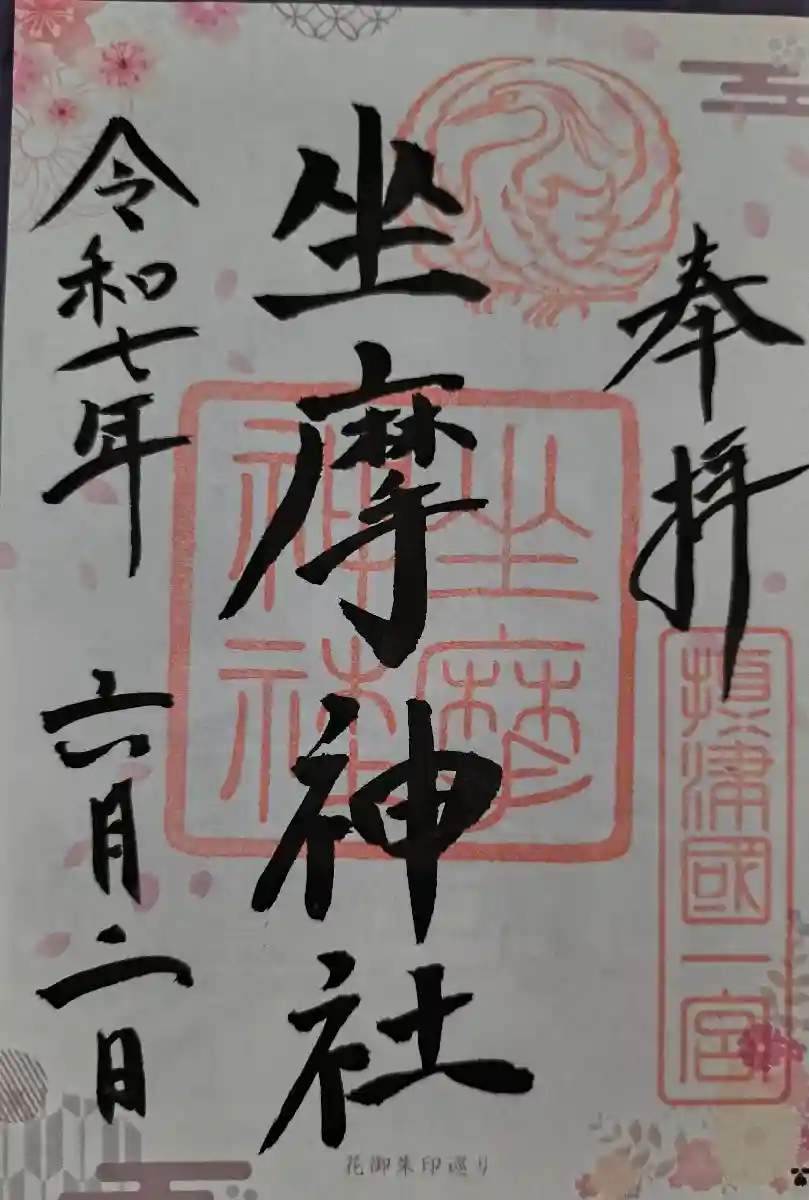 奉拝
攝津國一宮
坐摩神社
坐摩神社
令和七年 六月二日
花御朱印巡り